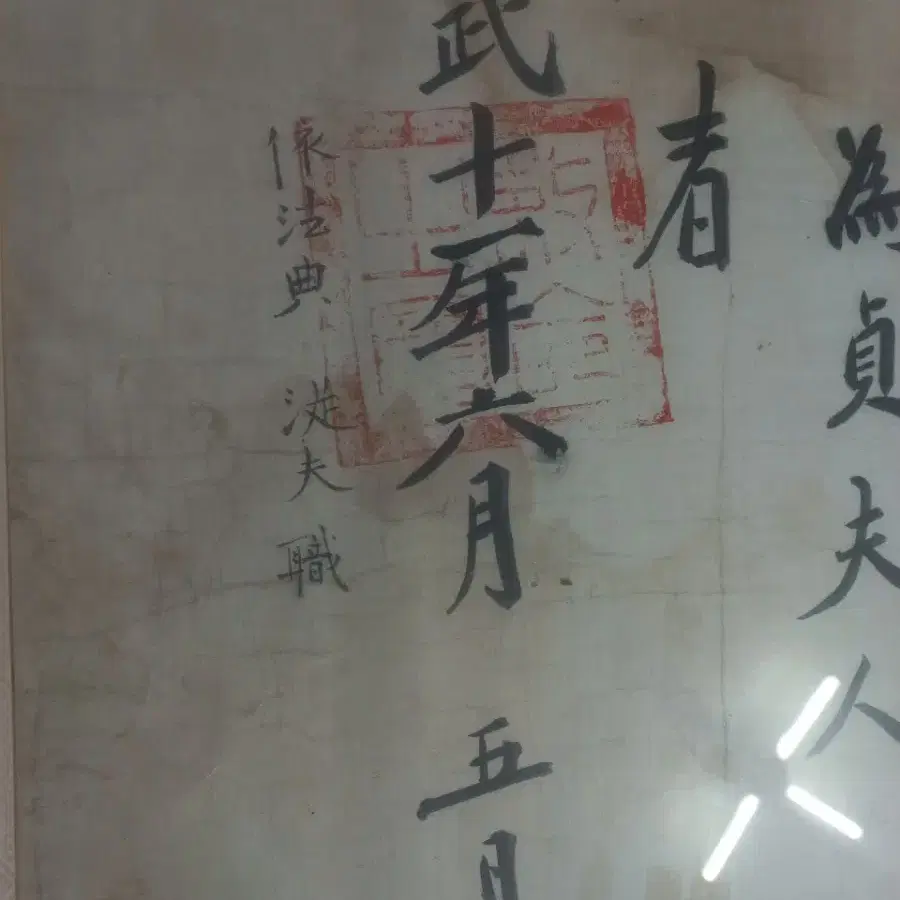 為貞夫人
者
武十一年六月 五日
依法典 從夫職